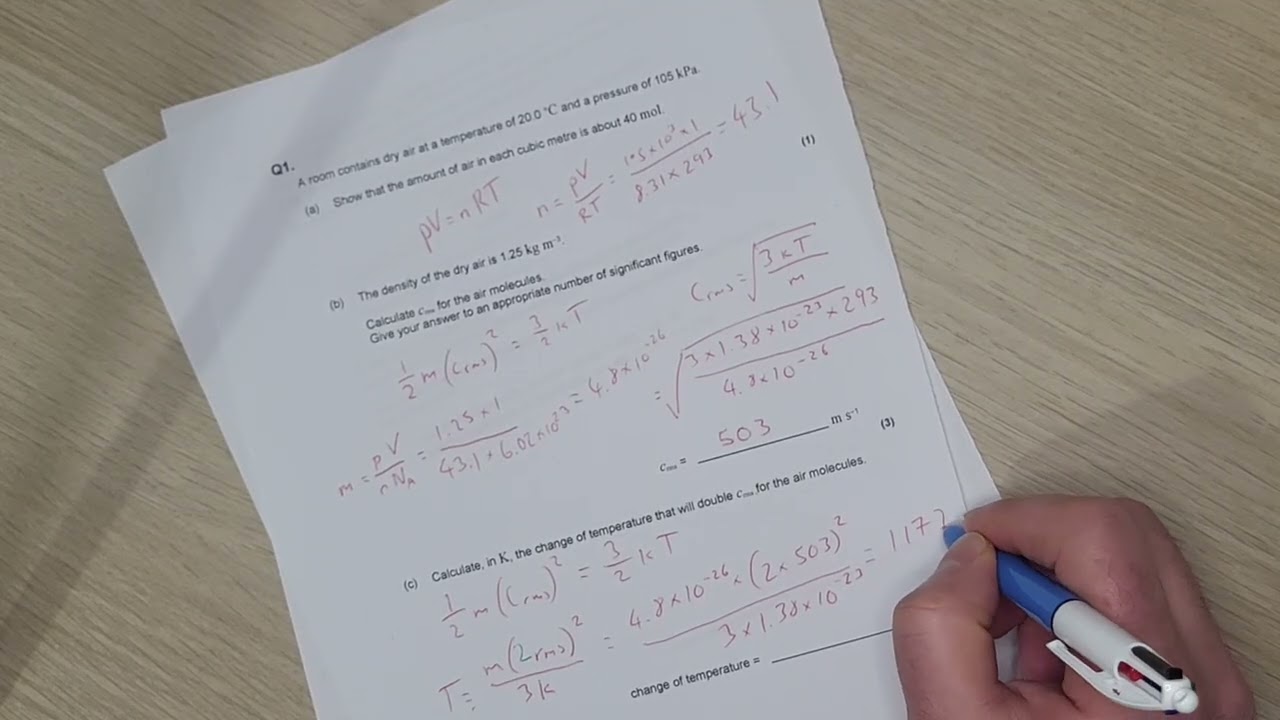 Q1.
A room contains dry air at a temperature of 20.0 °C and a pressure of 105 kPa.
(a) Show that the amount of air in each cubic metre is about 40 mol.
pV = nRT n = pV/RT = 105×10³×1/8.31×293 = 43.1
(1)
(b) The density of the dry air is 1.25 kg m⁻³.
Calculate cᵣₘₛ for the air molecules.
Give your answer to an appropriate number of significant figures.
½ m (Crms)² = 3/2 kT
Crms = √(3kT/m)
m = ρV/nNA = 1.25×1/43.1×6.02×10²³ = 4.8×10⁻²⁶
= √(3×1.38×10⁻²³×293/4.8×10⁻²⁶)
cᵣₘₛ = 503 m s⁻¹
(3)
(c) Calculate, in K, the change of temperature that will double cᵣₘₛ for the air molecules.
½ m (Crms)² = 3/2 kT
T = m(2rms)²/3k = 4.8×10⁻²⁶×(2×503)²/3×1.38×10⁻²³ = 117
change of temperature =